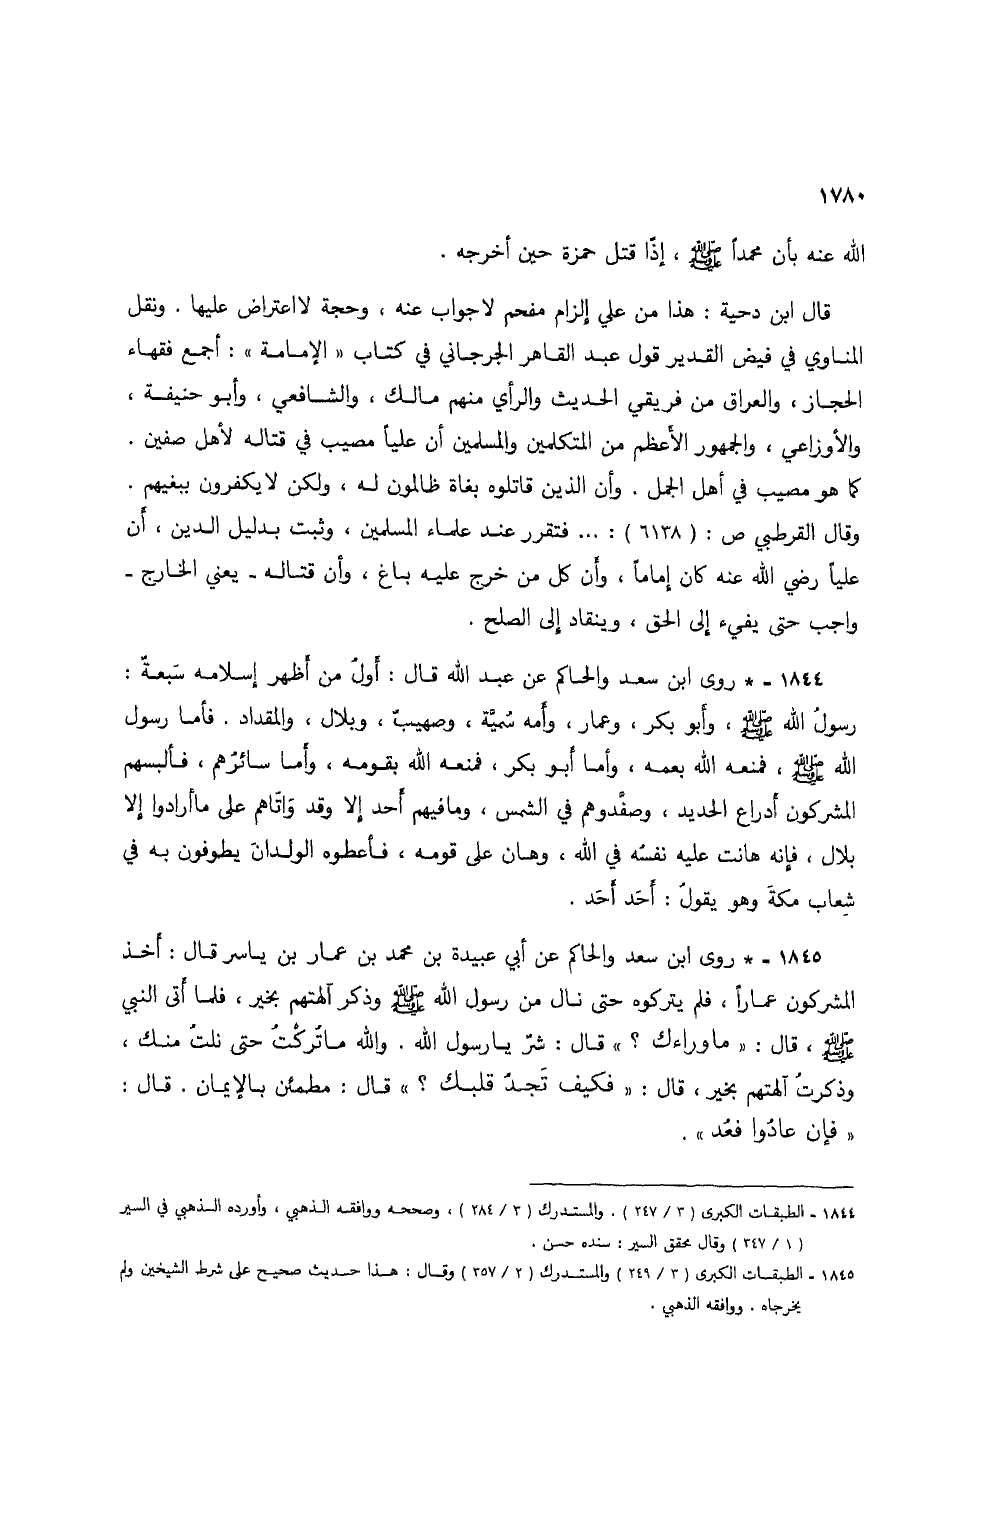 ١٧٨٠
الله عنه بأن محمداً ﷺ ، إذًا قتل حمزة حين أخرجه .
قال ابن دحية : هذا من علي إلزام مفحم لاجواب عنه ، وحجة لااعتراض عليها . ونقل
المناوي في فيض القدير قول عبد القاهر الجرجاني في كتاب « الإمامة » : أجمع فقهاء
الحجاز ، والعراق من فريقي الحديث والرأي منهم مالك ، والشافعي ، وأبو حنيفة ،
والأوزاعي ، والجمهور الأعظم من المتكلمين والمسلمين أن علياً مصيب في قتاله لأهل صفين .
كما هو مصيب في أهل الجمل . وأن الذين قاتلوه بغاة ظالمون له ، ولكن لايكفرون ببغيهم .
وقال القرطبي ص : ( ٦١٣٨ ) : ... فتقرر عند علماء المسلمين ، وثبت بدليل الدين ، أن
علياً رضي الله عنه كان إماماً ، وأن كل من خرج عليه باغ ، وأن قتاله ـ يعني الخارج ـ
واجب حتى يفيء إلى الحق ، وينقاد إلى الصلح .
١٨٤٤ ـ * روى ابن سعد والحاكم عن عبد الله قال : أَولُ من أَظهر إسلامه سَبعةٌ :
رسولُ الله ﷺ ، وأَبو بكر ، وعمار ، وأمه سُميَّة ، وصهيبٌ ، وبلال ، والمقداد . فأما رسول
الله ﷺ ، فمنعه الله بعمه ، وأما أَبو بكر ، فمنعه الله بقومه ، وأَما سائرُهم ، فألبسهم
المشركون أَدراع الحديد ، وصفَّدوهم في الشمس ، ومافيهم أَحد إلا وقد وَاتَاهم على ماأرادوا إلا
بلال ، فإنه هانت عليه نفسُه في الله ، وهان على قومه ، فأعطوه الولدانَ يطوفون به في
شِعاب مكةَ وهو يقولُ : أَحَد أَحَد .
١٨٤٥ ـ * روى ابن سعد والحاكم عن أبي عبيدة بن محمد بن عمار بن ياسر قال : أَخذ
المشركون عماراً ، فلم يتركوه حتى نال من رسول الله ﷺ وذكر آلهتهم بخير ، فلما أَتى النبي
ﷺ ، قال : « ماوراءك ؟ » قال : شرٌ يارسول الله . والله ماتُركْتُ حتى نلتُ منك ،
وذكرتُ آلهتهم بخير ، قال : « فكيف تَجدُ قلبك ؟ » قال : مطمئن بالإيمان . قال :
« فإن عادُوا فعُد » .
١٨٤٤ ـ الطبقات الكبرى ( ٣ / ٢٤٧ ) . والمستدرك ( ٣ / ٢٨٤ ) ، وصححه ووافقه الذهبي ، وأورده الذهبي في السير
( ١ / ٣٤٧ ) وقال محقق السير : سنده حسن .
١٨٤٥ ـ الطبقات الكبرى ( ٣ / ٢٤٩ ) والمستدرك ( ٢ / ٣٥٧ ) وقال : هذا حديث صحيح على شرط الشيخين ولم
يخرجاه . ووافقه الذهبي .